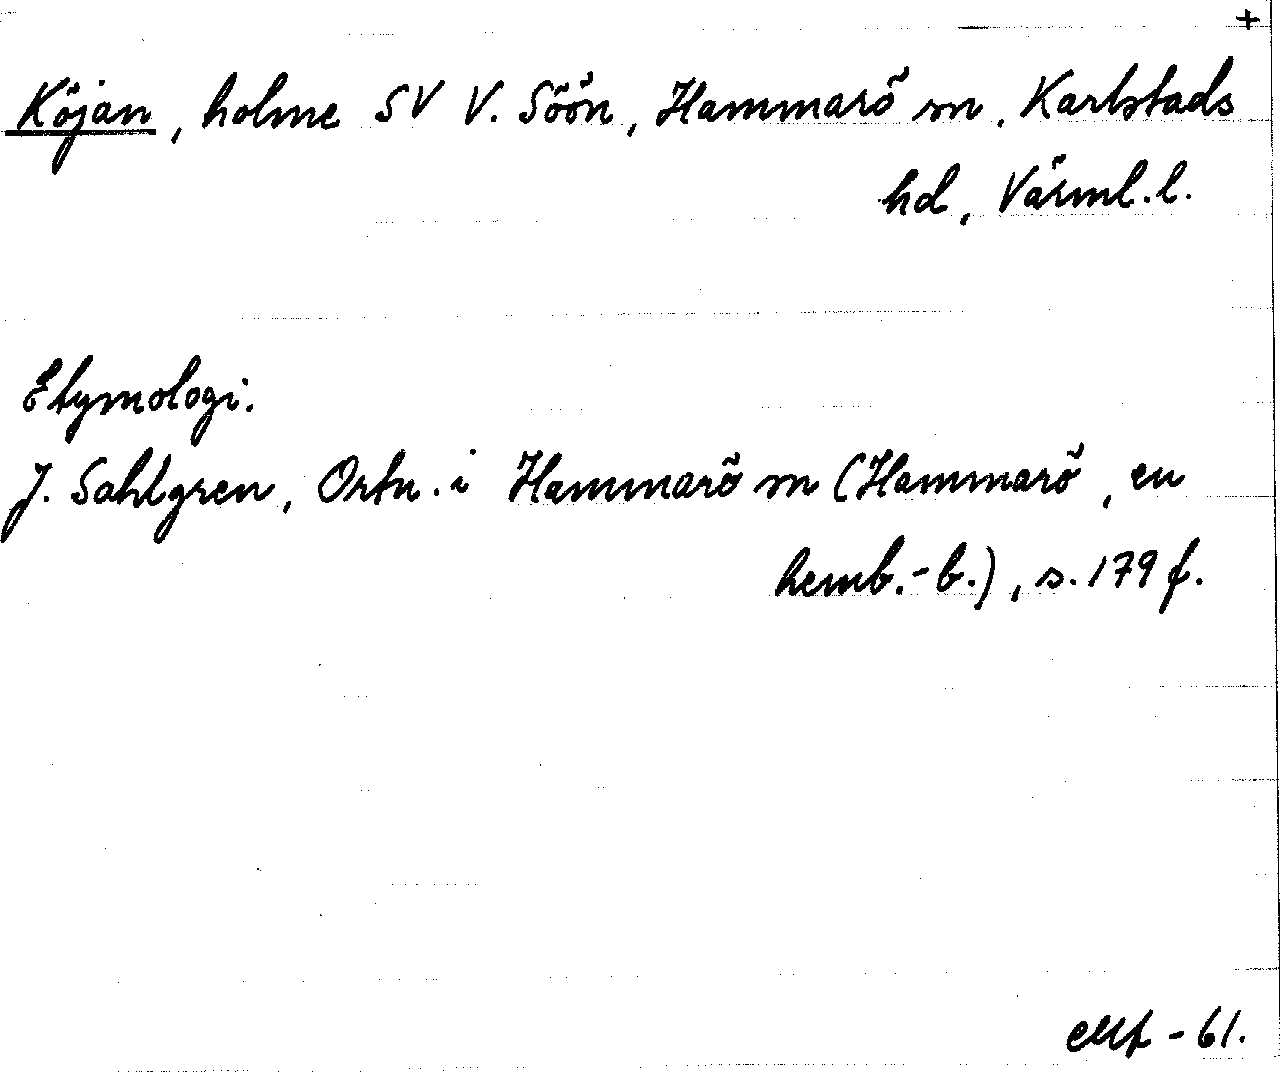 +
Köjan, holme SV V. Söön, Hammarö sn, Karlstads
hd, Värml. l.
Etymologi.
J. Sahlgren, Ortn. i Hammarö sn (Hammarö, en
hemb.-b.), s. 179 f.
- 61.